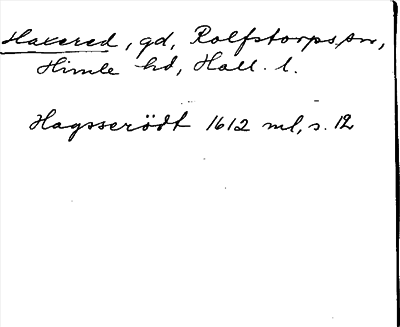 Haxered, gd, Rolfstorps sn,
Himle hd, Hall. l.
Hagsserödt 1612 ml, s. 12